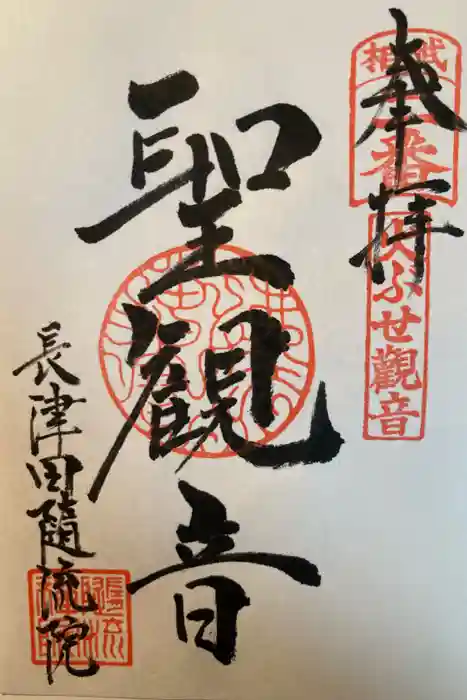 奉拝
武相
二番
火ぶせ觀音
聖観音
長津田随流院